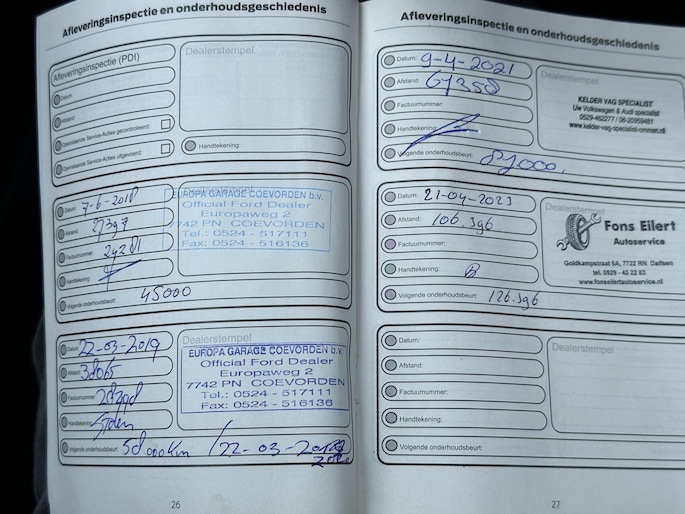 Afleveringsinspectie en onderhoudsgeschiedenis
Afleveringsinspectie (PDI)
Datum:
Afstand:
Openstaande Service-Acties gecontroleerd:
Openstaande Service-Acties uitgevoerd:
Dealerstempel
Handtekening:
Datum: 7-6-2018
Afstand:
Factuurnummer:
Handtekening:
Volgende onderhoudsbeurt: 45000
Dealerstempel
EUROPA GARAGE COEVORDEN b.v.
Official Ford Dealer
Europaweg 2
7742 PN COEVORDEN
Tel.: 0524 - 517111
Fax: 0524 - 516136
Datum: 22-03-2019
Afstand: 38065
Factuurnummer:
Handtekening:
Volgende onderhoudsbeurt: 58000km / 22-03-
Dealerstempel
EUROPA GARAGE COEVORDEN b.v.
Official Ford Dealer
Europaweg 2
7742 PN COEVORDEN
Tel.: 0524 - 517111
Fax: 0524 - 516136
26
Afleveringsinspectie en onderhoudsgeschiedenis
Datum: 9-4-2021
Afstand:
Factuurnummer:
Handtekening:
Volgende onderhoudsbeurt:
Dealerstempel
KELDER VAG SPECIALIST
Uw Volkswagen & Audi specialist
0529-462277 / 06-20959481
www.kelder-vag-specialist-ommen.nl
Datum: 21-04-2023
Afstand: 106.396
Factuurnummer:
Handtekening:
Volgende onderhoudsbeurt: 126.396
Dealerstempel
Fons Eilert
Autoservice
Goldkampstraat 6A, 7722 RN Dalfsen
tel. 0529 - 43 22 63
www.fonseilertautoservice.nl
Datum:
Afstand:
Factuurnummer:
Handtekening:
Volgende onderhoudsbeurt:
Dealerstempel
27